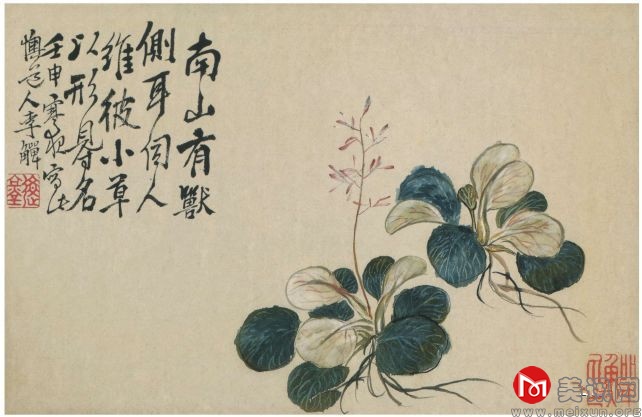 南山有獸
側耳伺人
維彼小草
以形得名
壬申寒夜寫此
懊道人李鱓
www.meixun.org